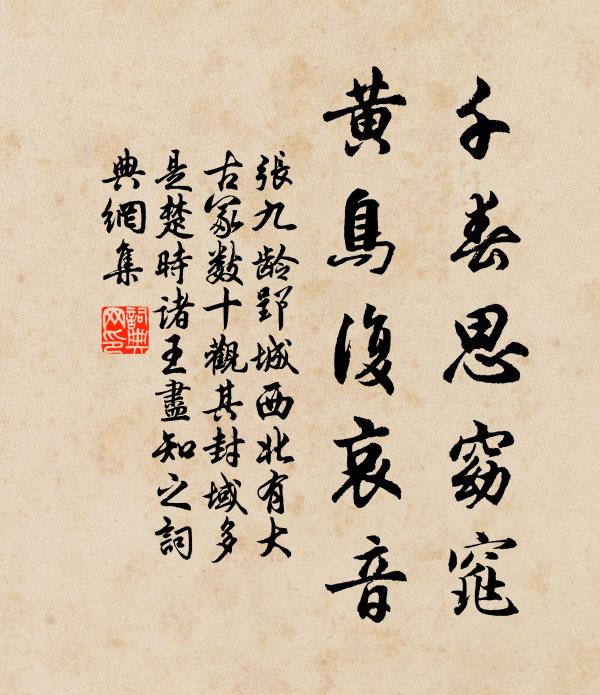 千春思窈窕
黃鳥復哀音
張九龄郢城西北有大
古冢数十觀其封域多
是楚時諸王盡知之詞
典網集
詞典
网印